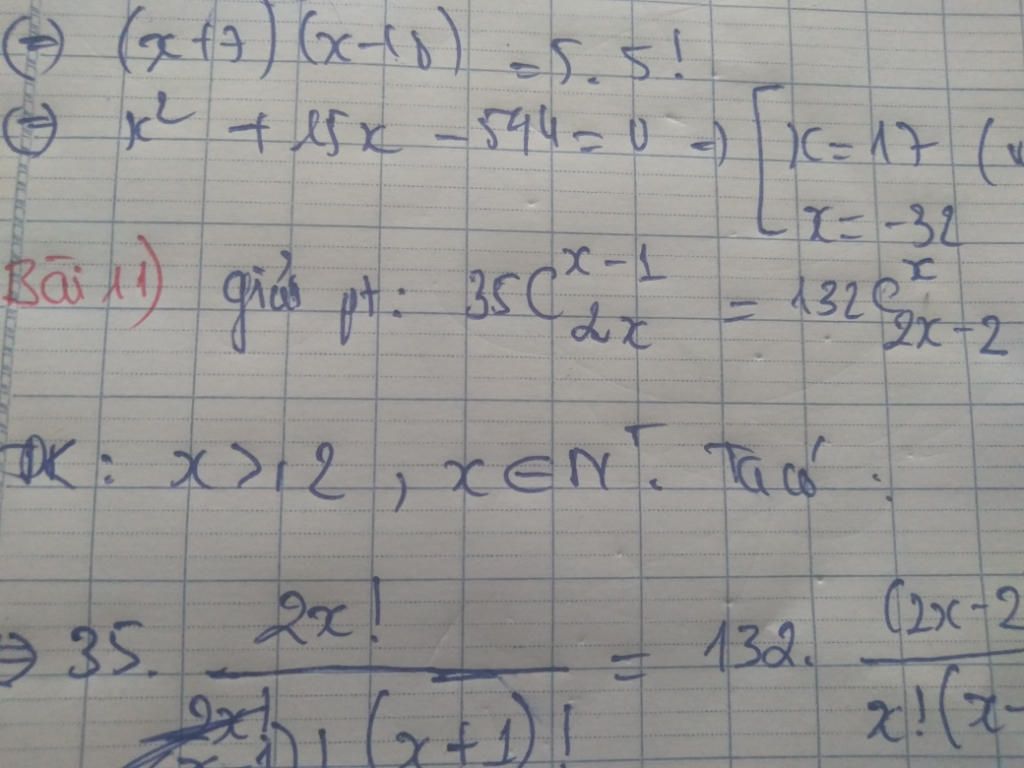 ⇔ (x+7)(x+8) = 5. 5!
⇔ x² + 15x - 544 = 0 ⇒ [ x = 17 (
x = -32
Bài 11) giải pt: 35C_{2x}^{x-1} = 132C_{2x-2}^{x}
ĐK: x ≥ 2, x ∈ N. Ta có:
⇒ 35. 2x! / (x-1)! (x+1)! = 132. (2x-2 / x!(x-